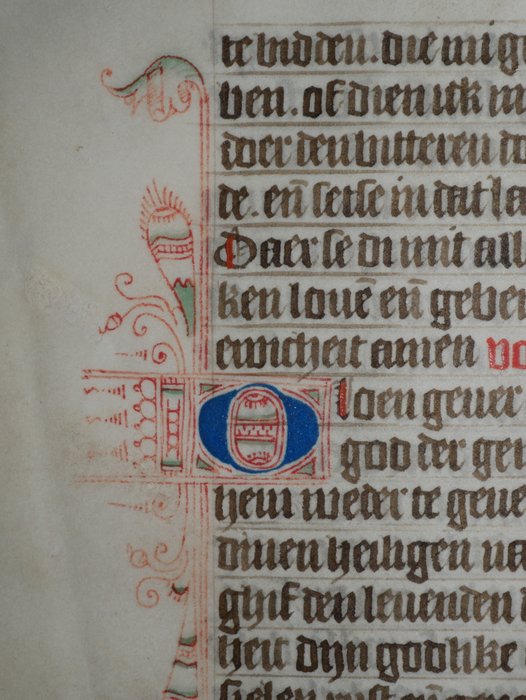 te bidden. die mi g
ven. of dien ick m
doer den bitteren do
de. en̄ setse in dat la
Daer se di mit all
ken louē en̄ geben
ewicheit amen vo
O loen gever
god der gen
hem weder te geue
dinen heiligen na
ghif den leuenden
heit dijn godlike